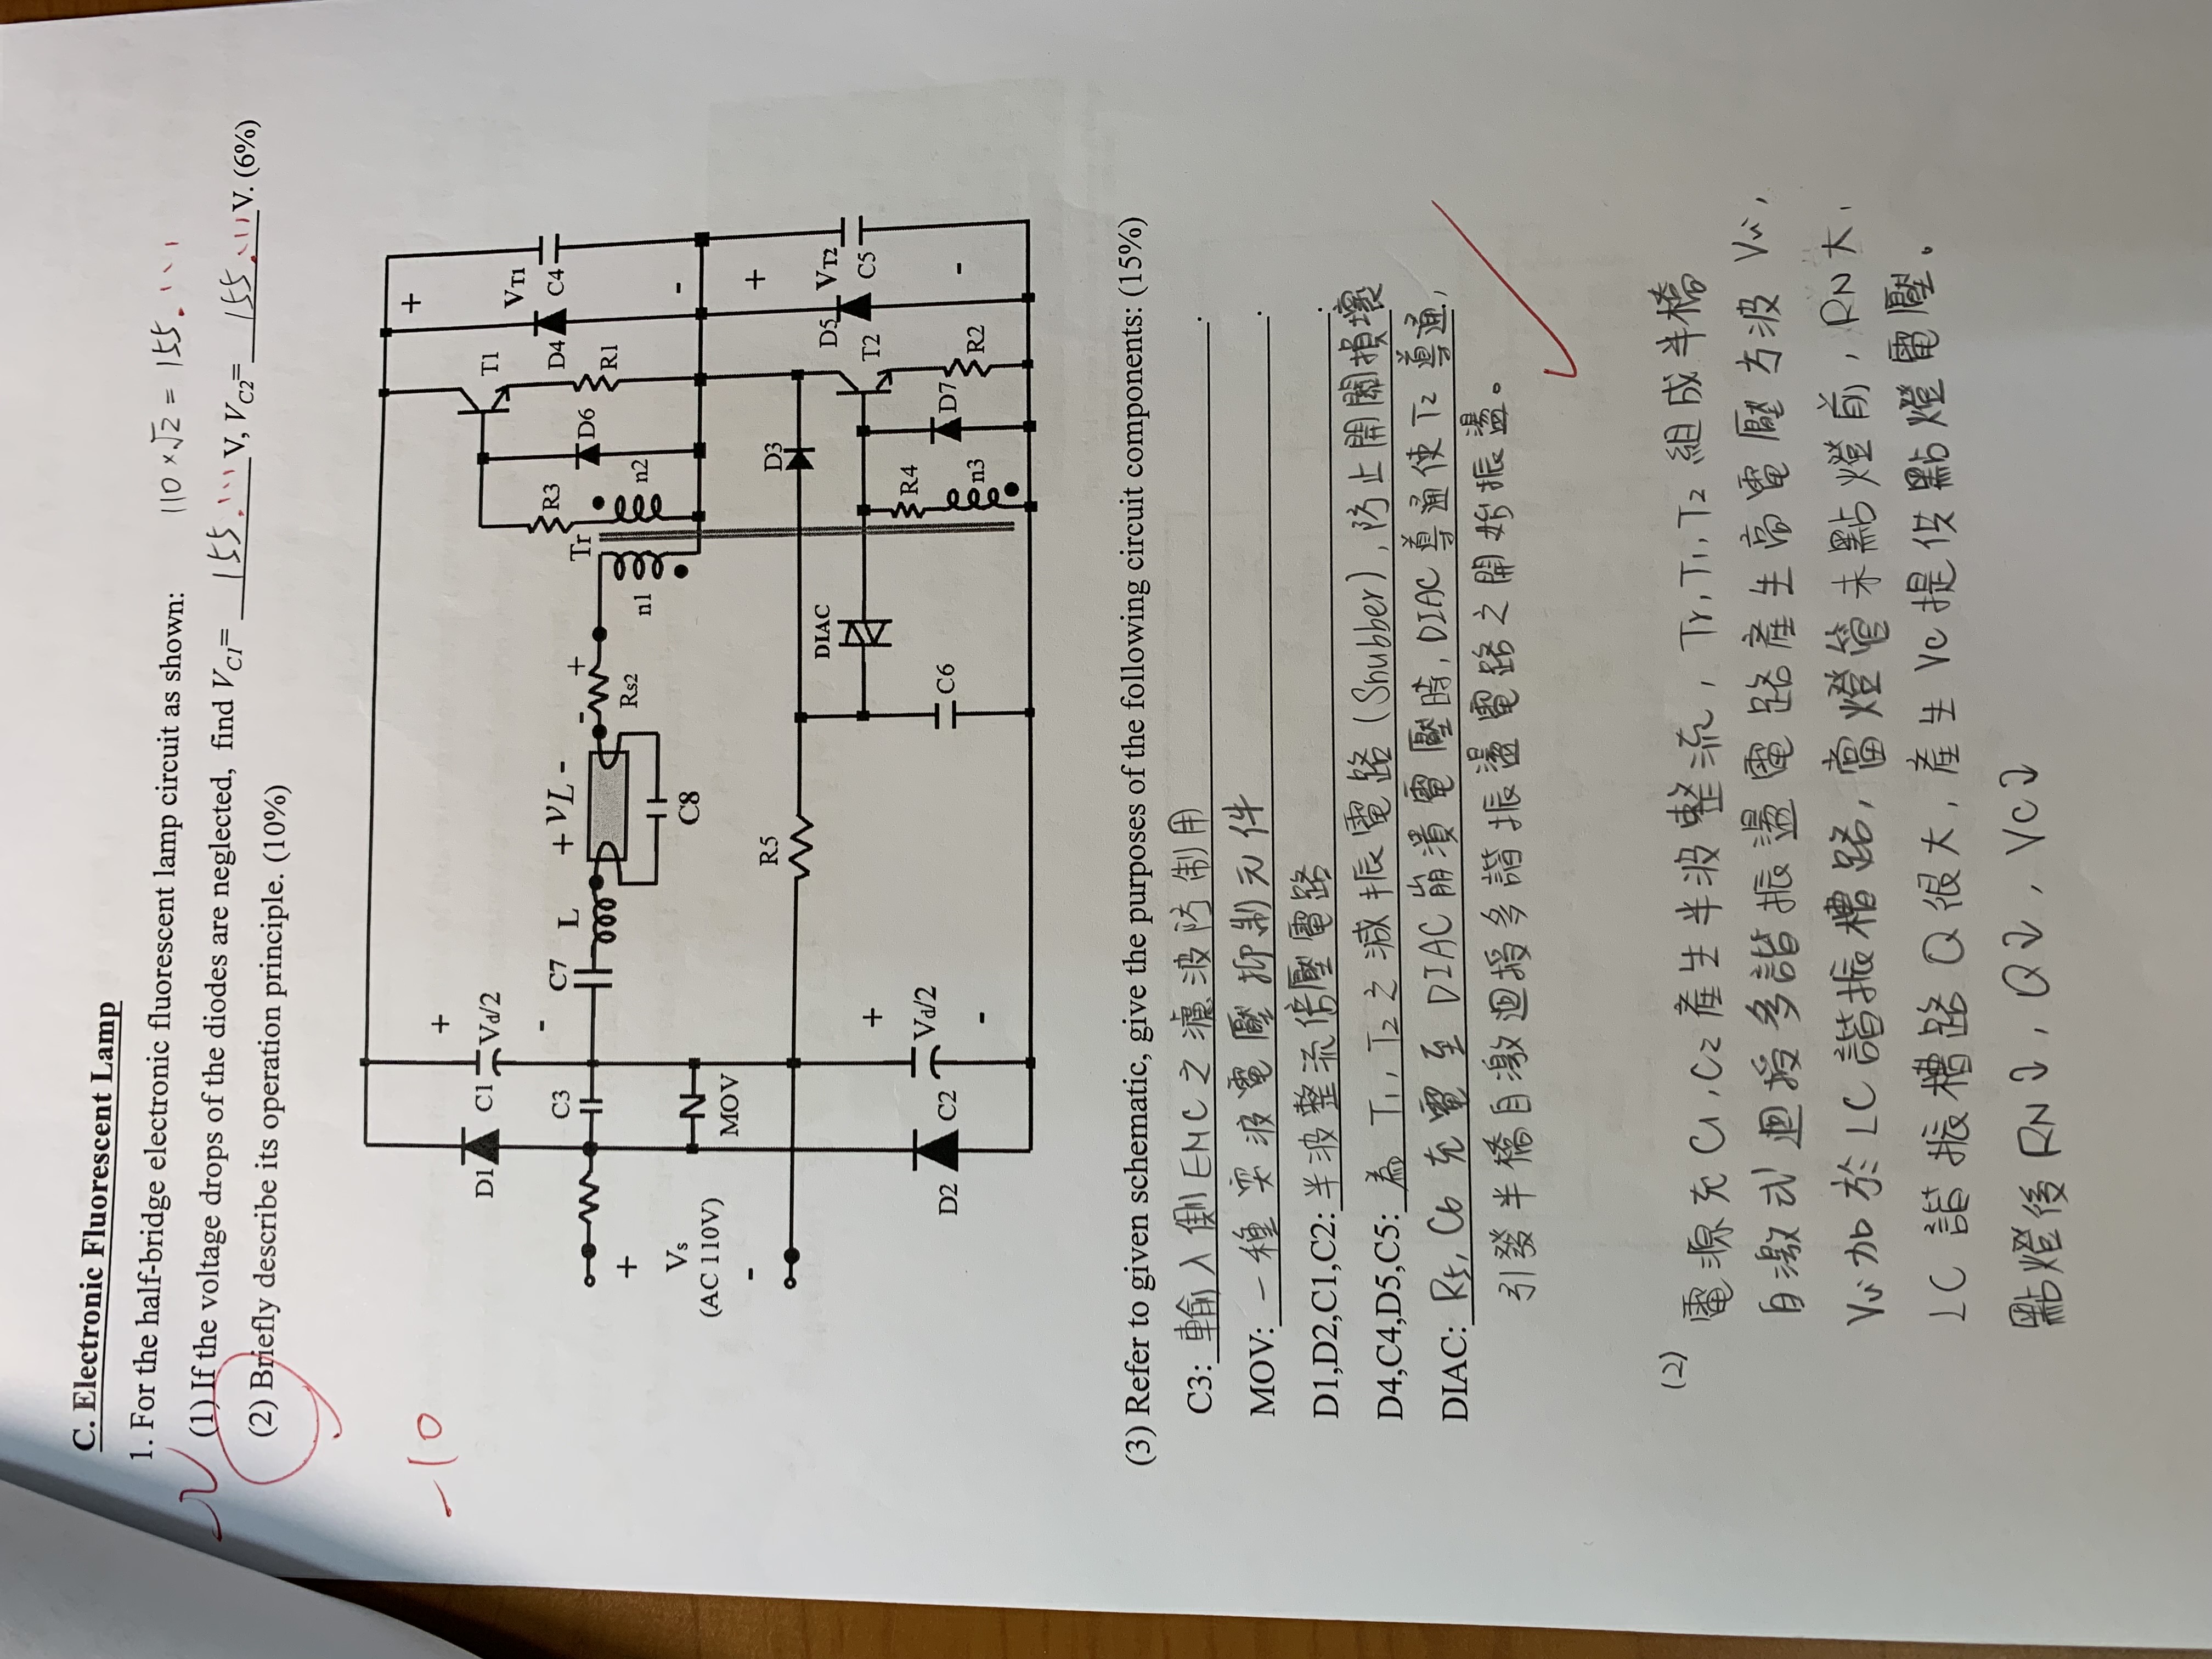 C. Electronic Fluorescent Lamp
1. For the half-bridge electronic fluorescent lamp circuit as shown:
110 × √2 = 155. ...
(1) If the voltage drops of the diodes are neglected, find VC1= 155. ... V, VC2= 155. ... V. (6%)
(2) Briefly describe its operation principle. (10%)
-10
D1 C1 + Vd/2 -
C3 C7 L + vL - - + Rs2
C8
+ Vs (AC 110V) -
MOV
Tr n1 n2 R3 D6 T1 R1 D4 + VT1 - C4
R5 D3
DIAC
C6
D2 C2 + Vd/2 -
R4 n3 D7 T2 R2 D5 + VT2 - C5
(3) Refer to given schematic, give the purposes of the following circuit components: (15%)
C3: 輸入側EMC之濾波防制用.
MOV: 一種突波電壓抑制元件.
D1,D2,C1,C2: 半波整流倍壓電路.
D4,C4,D5,C5: 為 T1, T2 之減振電路 (Snubber), 防止開關損壞
DIAC: R5, C6 充電至 DIAC崩潰電壓時, DIAC 導通使 T2 導通,
引發半橋自激迴授多諧振盪電路之開始振盪。
(2)
電源充 C1, C2 產生半波整流, Tr, T1, T2 組成半橋
自激式迴授多諧振盪電路產生高電壓方波 Vi,
Vi 加於 LC 諧振槽路, 當燈管未點燈前, RN大,
LC 諧振槽路 Q 很大, 產生 Vc 提供點燈電壓。
點燈後 RN↓, Q↓, VC↓